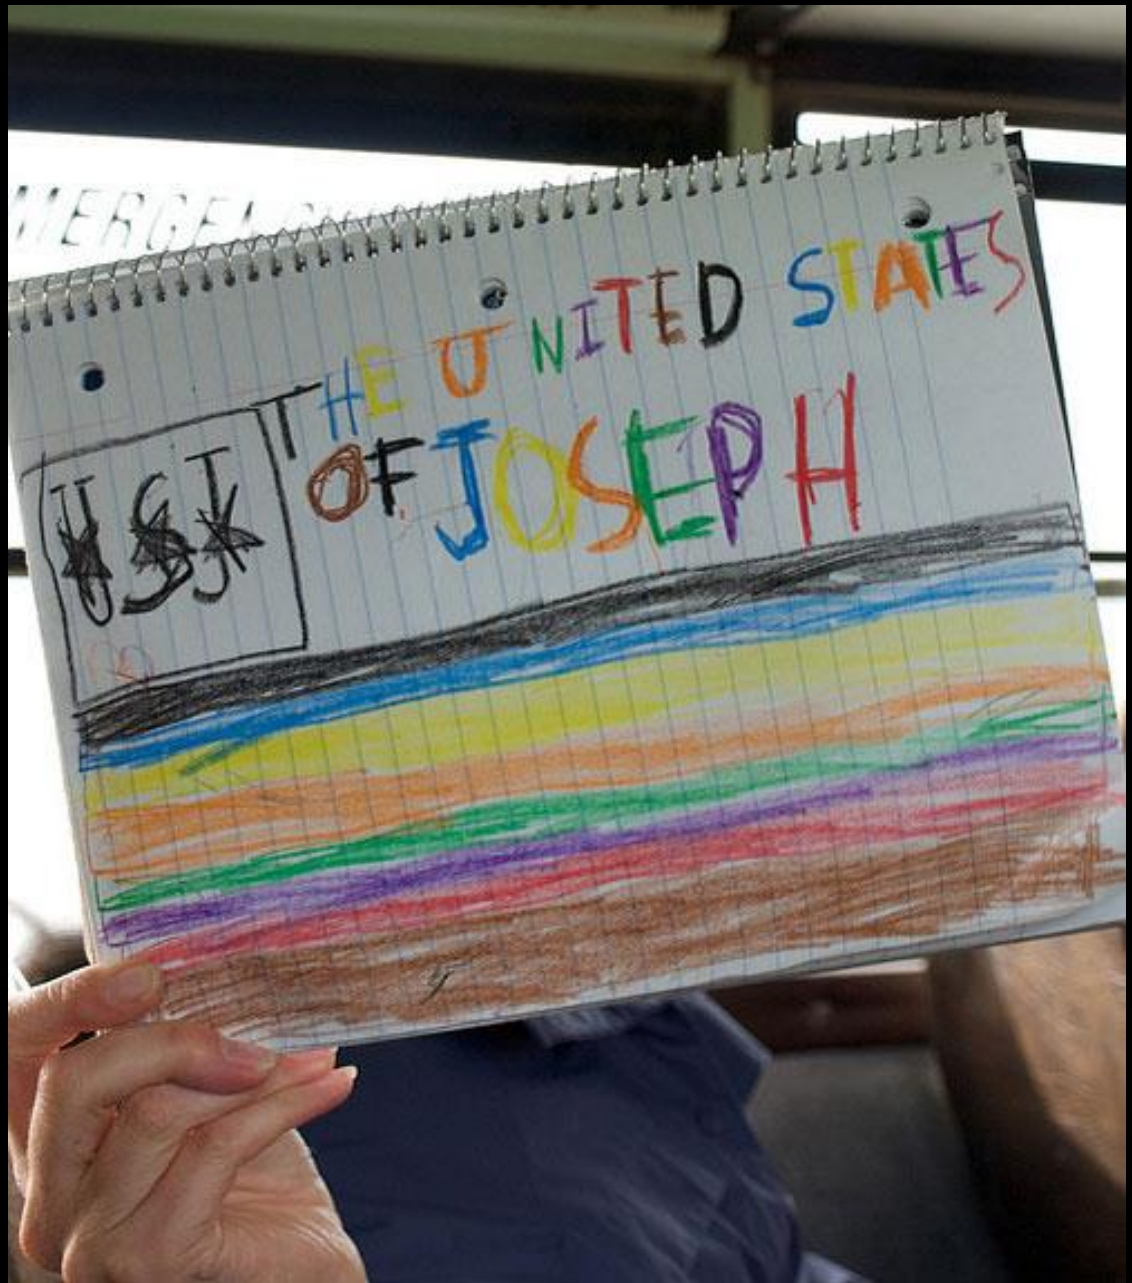 MERGEN
THE UNITED STATES
OF JOSEPH
USJ